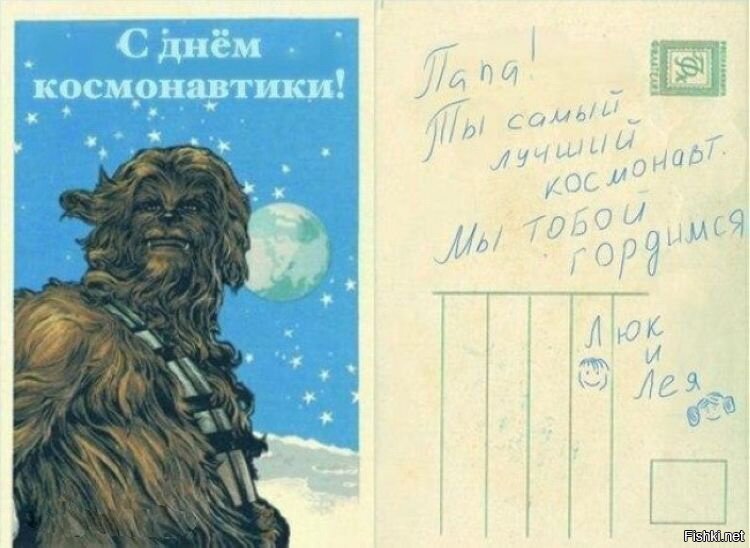 С днём
космонавтики!
Папа!
Ты самый
лучший
космонавт.
Мы тобой
гордимся
Люк
и
Лея
Fishki.net